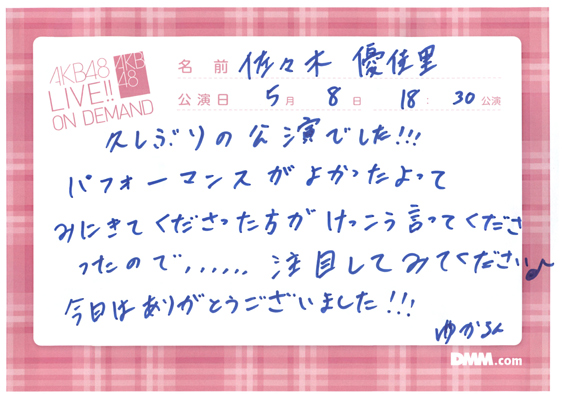 AKB48
LIVE!!
ON DEMAND
AKB
48
名前 佐々木 優佳里
公演日 5月 8日 18:30公演
久しぶりの公演でした!!!
パフォーマンスがよかったよって
みにきてくださった方がけっこう言ってくださ
ったので、、、、、、注目してみてください♪
今日はありがとうございました!!!
ゆかるん
DMM.com